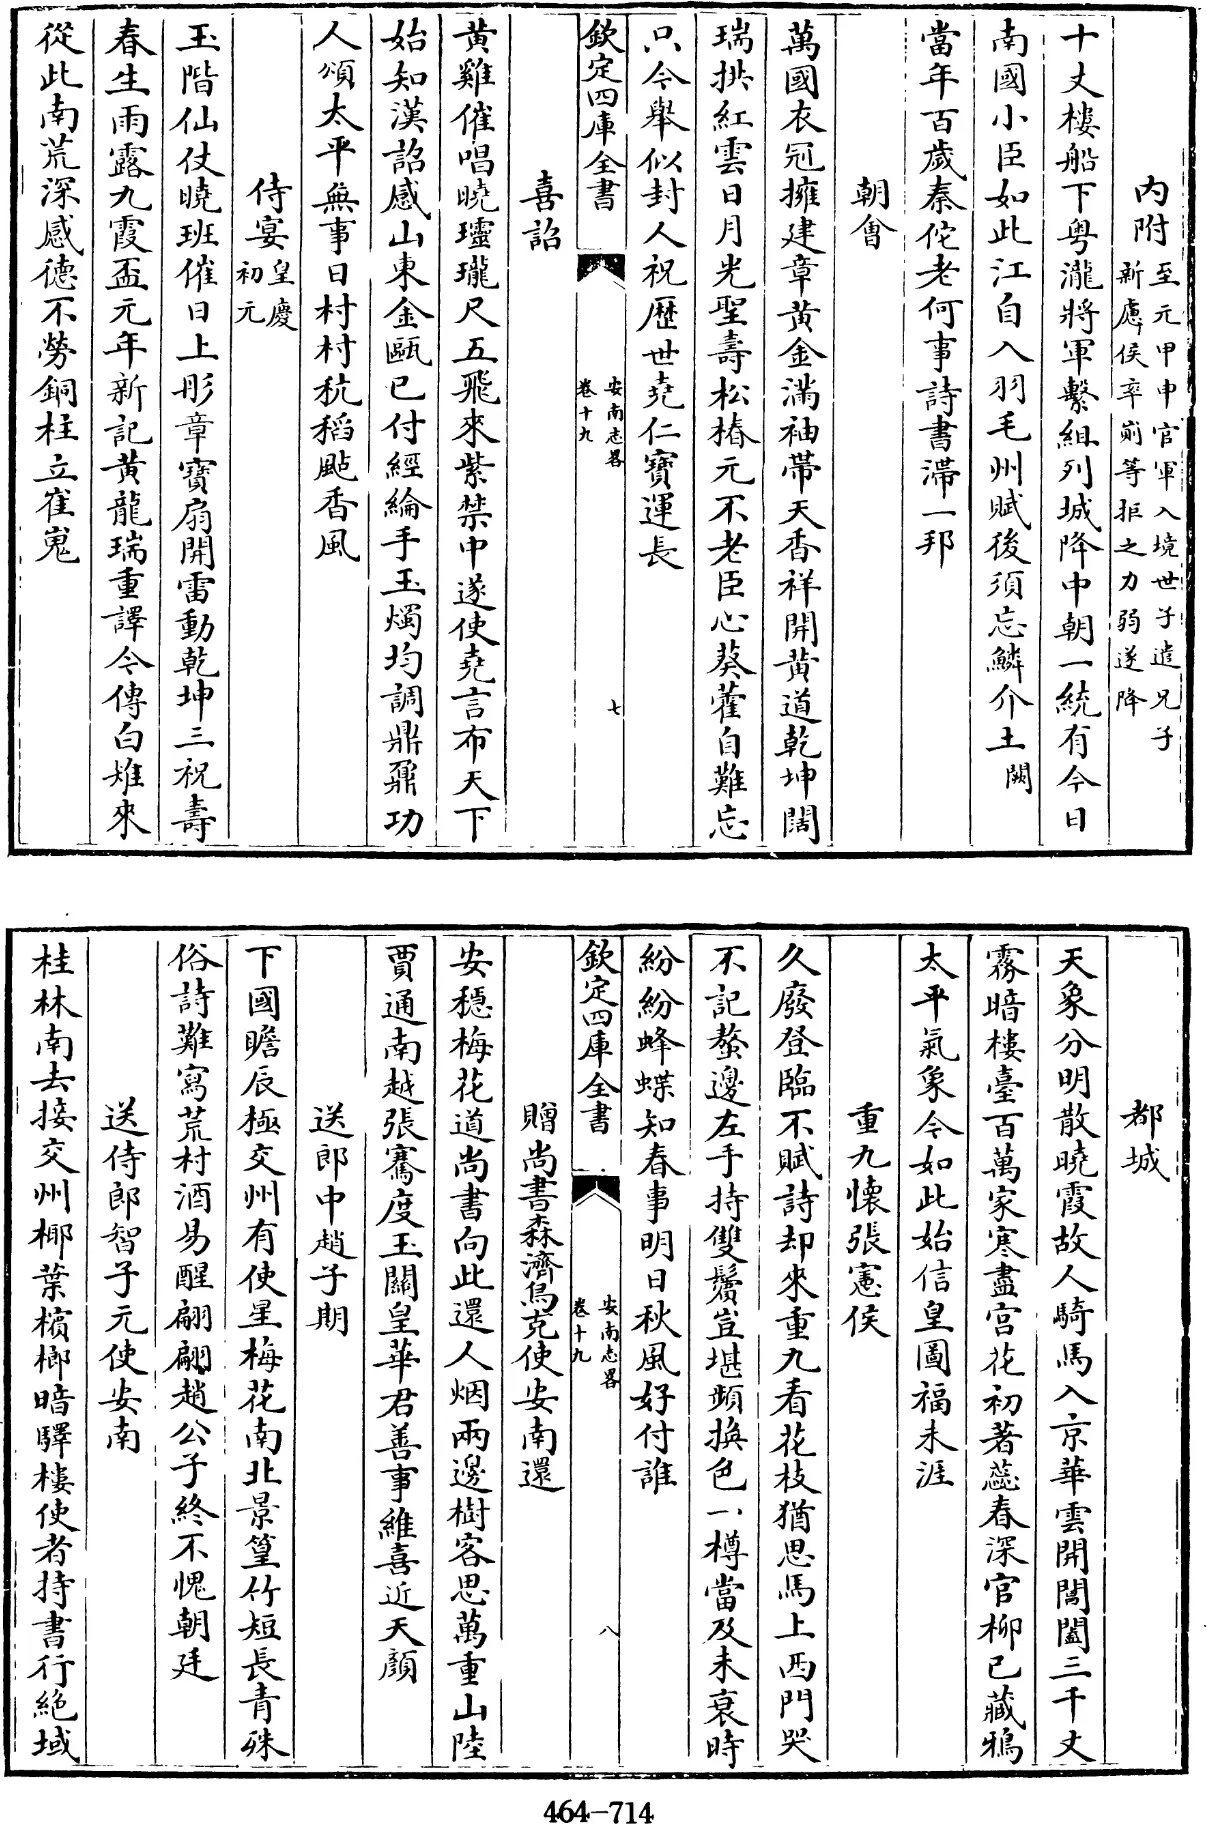 内附至元甲申官軍入境世子遣兄子
新慮侯率㓨等拒之力弱遂降
十丈樓船下粤瀧將軍繫組列城降中朝一統有今日
南國小臣如此江自入羽毛州賦後須忘鱗介土闕
當年百歲秦佗老何事詩書滯一邦
朝會
萬國衣冠擁建章黄金滿袖帶天香祥開黄道乾坤闊
瑞拱紅雲日月光聖壽松椿元不老臣心葵藿自難忘
只今舉似封人祝歷世堯仁寶運長
欽定四庫全書
安南志畧
卷十九
七
喜詔
黄雞催唱曉瓏瓏尺五飛來紫禁中遂使堯言布天下
始知漢詔感山東金甌已付經綸手玉燭均調鼎鼐功
人頌太平無事日村村秔稻颭香風
侍宴皇慶
初元
玉階仙仗曉班催日上彤章寶扇開雷動乾坤三祝壽
春生雨露九霞盃元年新記黄龍瑞重譯今傳白雉來
從此南荒深感德不勞銅柱立崔嵬
都城
天象分明散曉霞故人騎馬入京華雲開閶闔三千丈
霧暗樓臺百萬家寒盡宫花初著蕊春深官柳已藏鴉
太平氣象今如此始信皇圖福未涯
重九懷張憲侯
久廢登臨不賦詩却來重九看花枝猶思馬上西門哭
不記螯邊左手持雙鬢豈堪頻換色一樽當及未衰時
紛紛蜂蝶知春事明日秋風好付誰
欽定四庫全書
安南志畧
卷十九
八
贈尚書森濟烏克使安南還
安穩梅花道尚書向此還人烟兩邊樹客思萬重山陸
賈通南越張騫度玉關皇華君善事維喜近天顔
送郎中趙子期
下國瞻辰極交州有使星梅花南北景篁竹短長青殊
俗詩難寫荒村酒易醒翩翩趙公子終不愧朝廷
送侍郎智子元使安南
桂林南去接交州椰葉檳榔暗驛樓使者持書行絶域
464-714